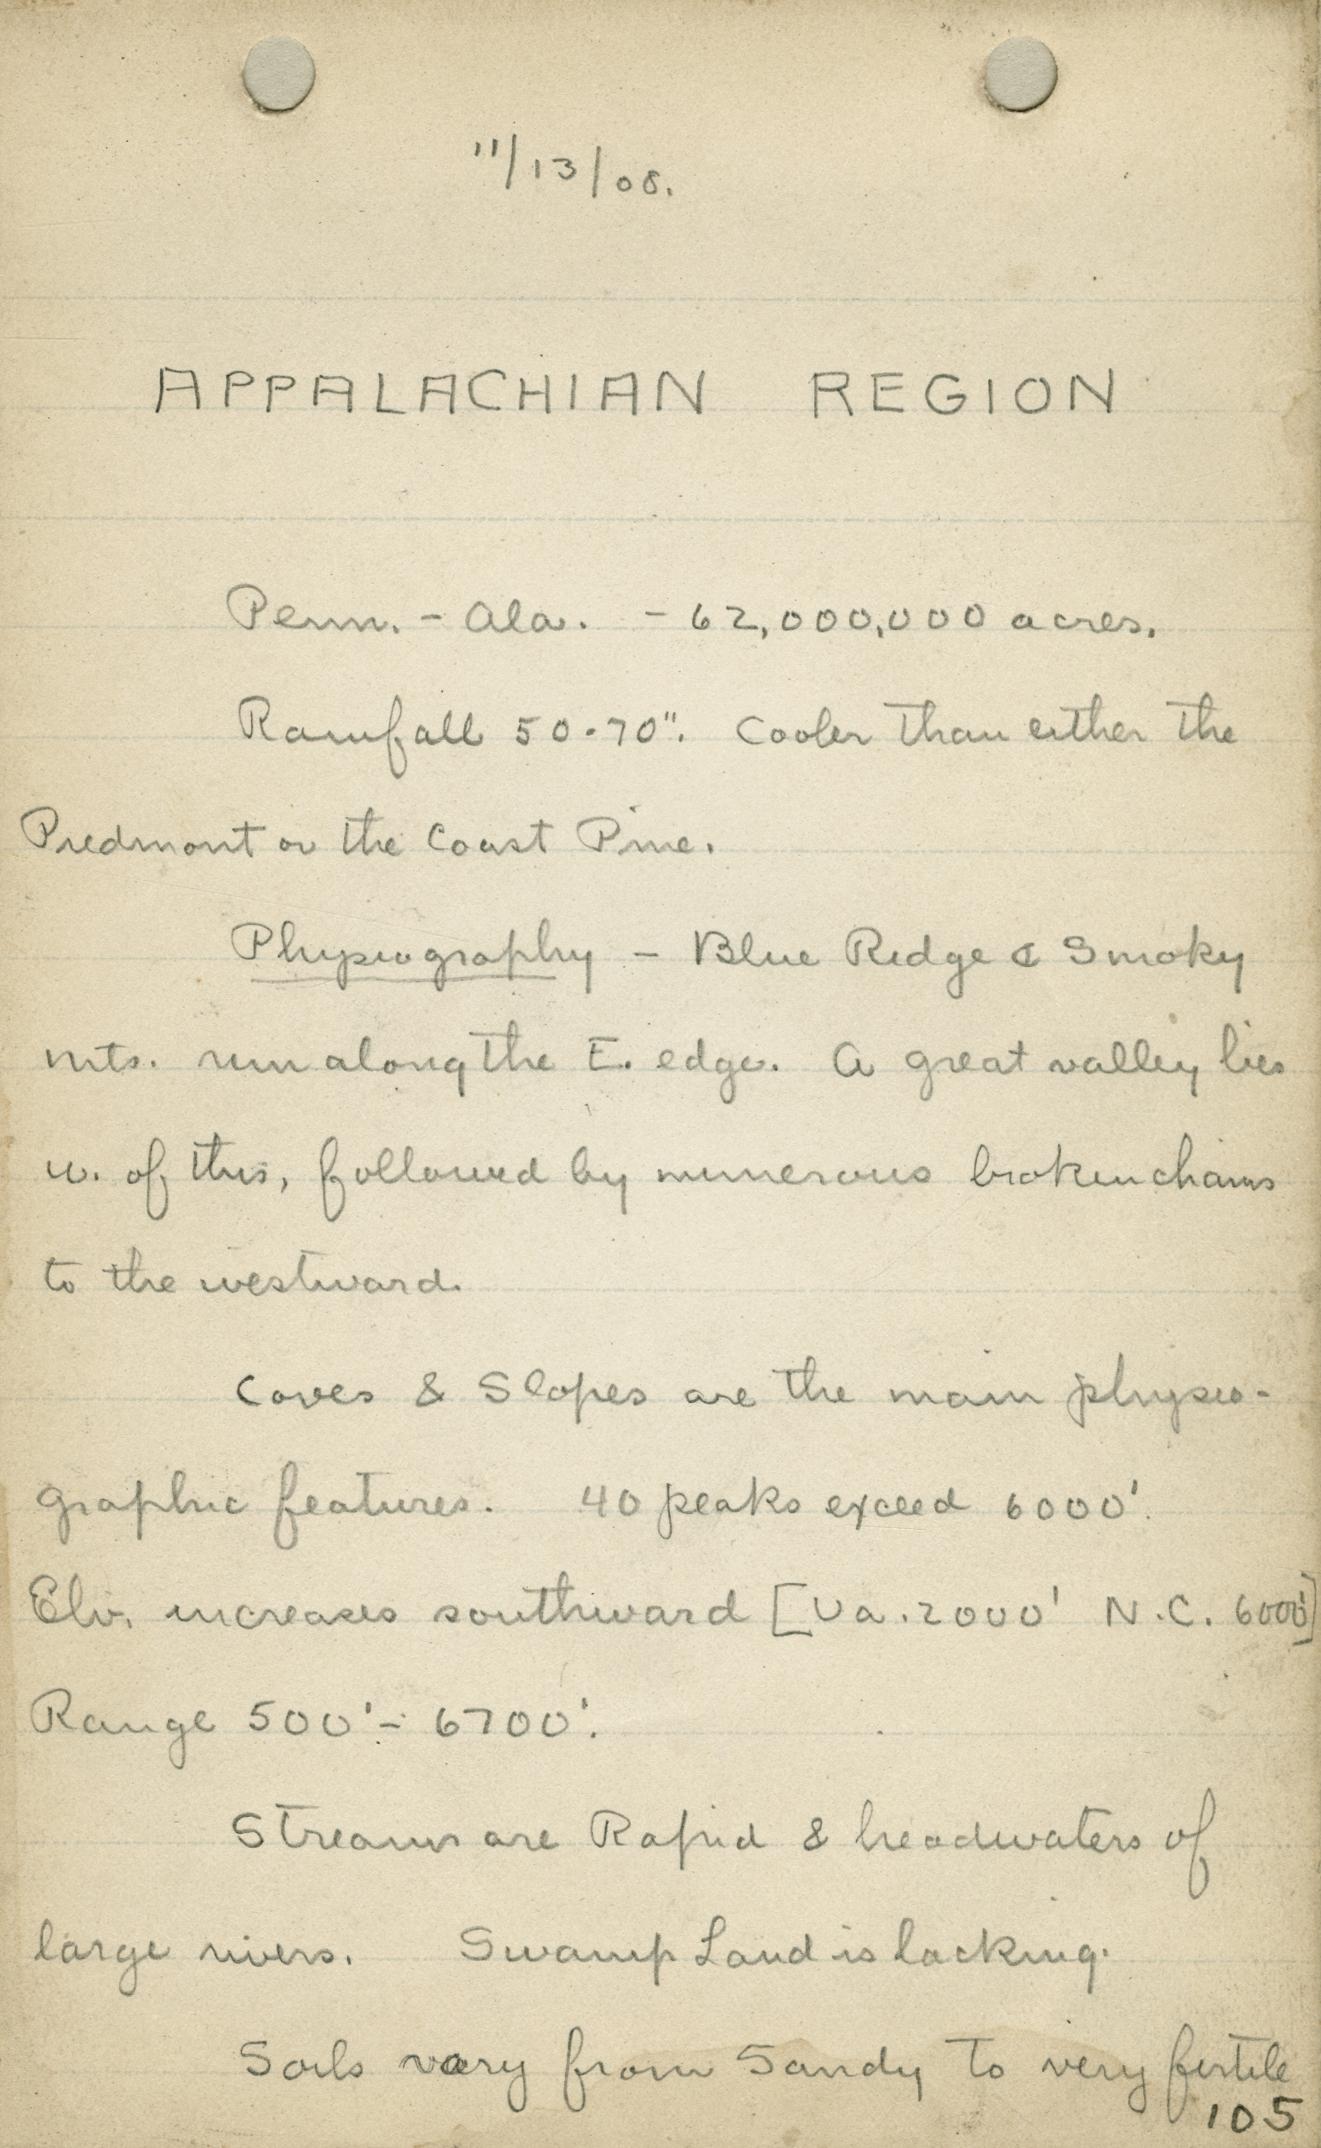 11/13/08.
APPALACHIAN REGION
Penn. - Ala. - 62,000,000 acres.
Rainfall 50-70". Cooler than either the
Piedmont or the Coast Pine.
Physiography - Blue Ridge & Smoky
mts. run along the E. edge. A great valley lies
w. of this, followed by numerous broken chains
to the westward.
Coves & Slopes are the main physio-
graphic features. 40 peaks exceed 6000'.
Elv. increases southward [Va. 2000' N.C. 6000']
Range 500' - 6700'.
Streams are Rapid & headwaters of
large rivers. Swamp Land is lacking.
Soils vary from Sandy to very fertile
105